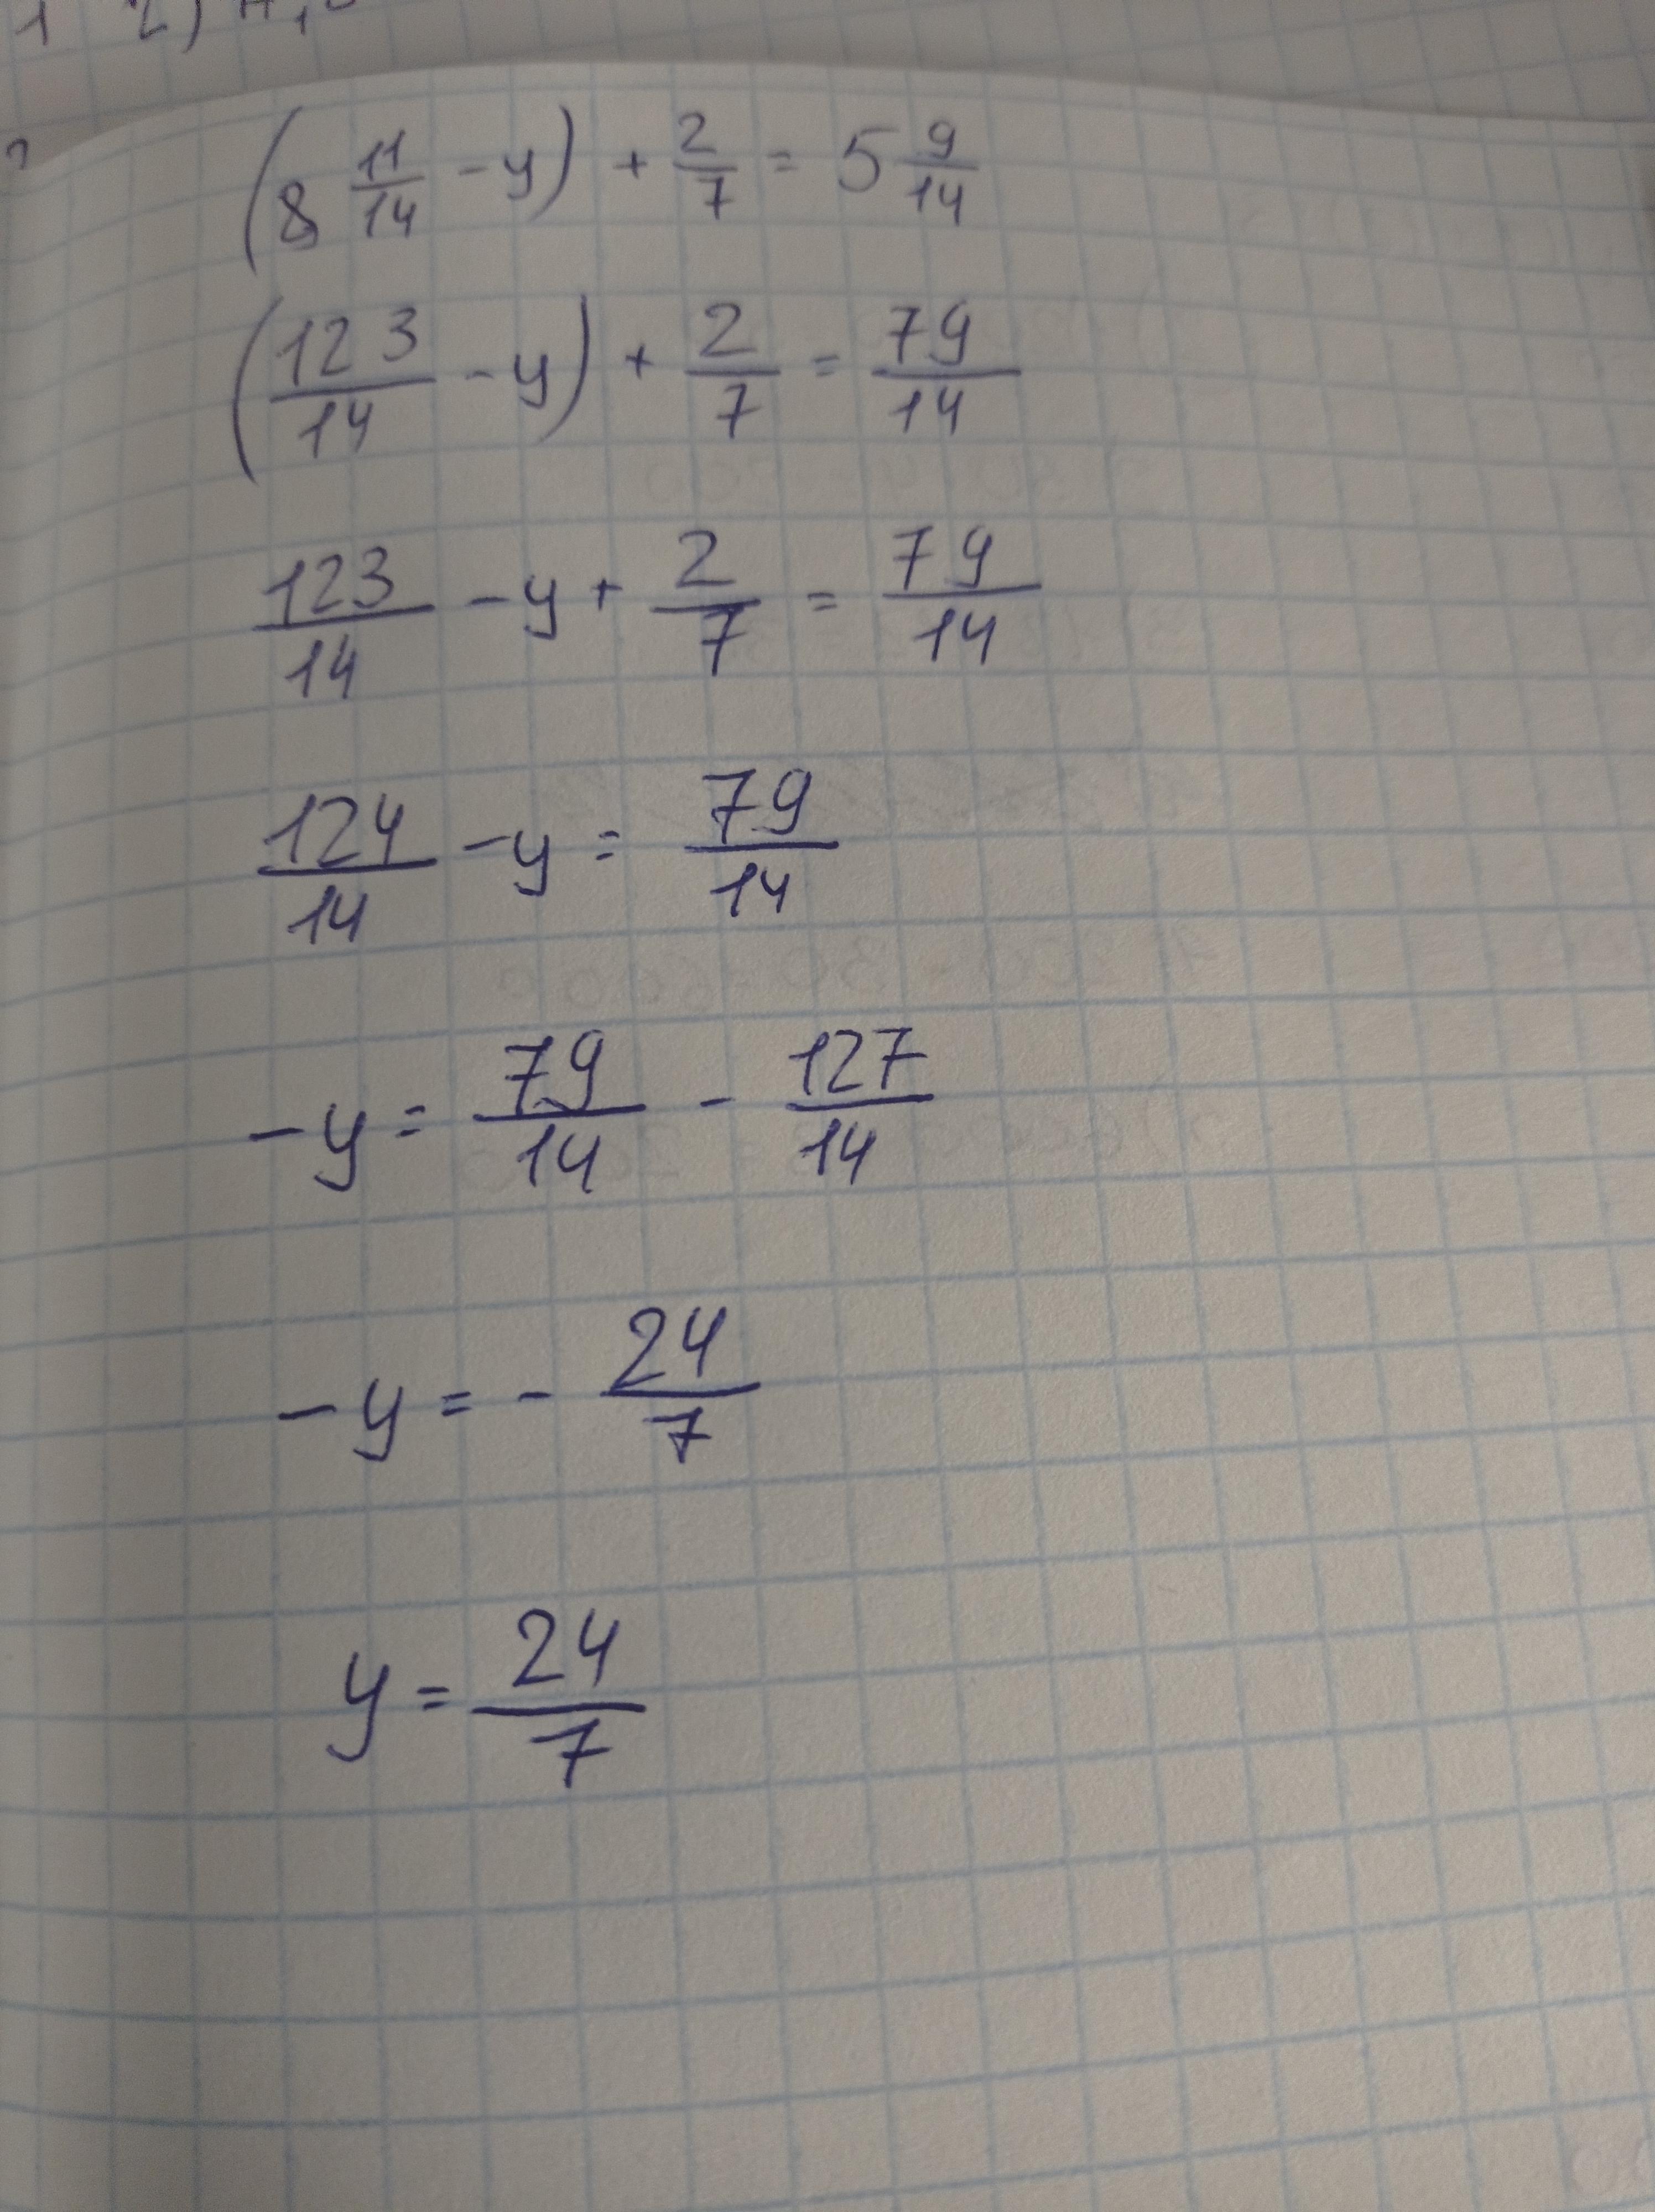 1 2)
(8 11/14 - y) + 2/7 = 5 9/14
(123/14 - y) + 2/7 = 79/14
123/14 - y + 2/7 = 79/14
124/14 - y = 79/14
-y = 79/14 - 127/14
-y = - 24/7
y = 24/7